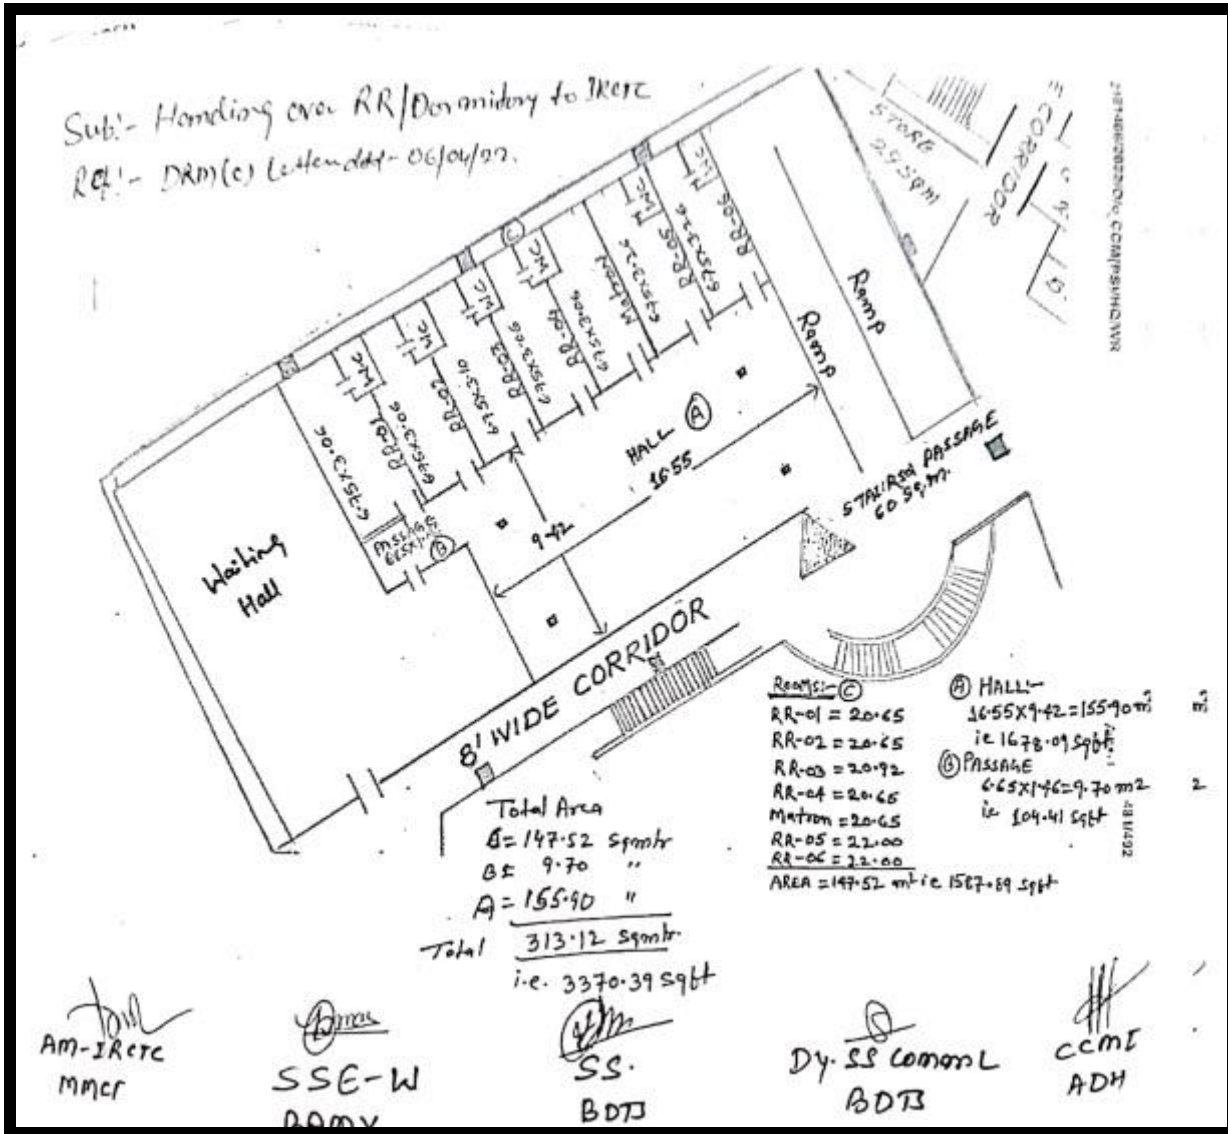 Sub:- Handing over RR/Dormitory to IRCTC
Ref:- DRM(C) Letter dtd- 06/04/22.
STORE
29.5 QM
CORRIDOR
WC
WC
WC
WC
WC
WC
WC
6.75X3.06
RR-01
6.75X3.06
RR-02
6.75X3.10
RR-03
6.75X3.06
RR-04
6.75X3.06
Matron
6.75X3.26
RR-05
6.75X3.26
RR-06
C
Ramp
Ramp
HALL A
16.55
9.42
PASSAGE
B
Waiting
Hall
PASSAGE
60 Sq.m.
8' WIDE CORRIDOR
Rooms:- C
RR-01 = 20.65
RR-02 = 20.65
RR-03 = 20.92
RR-04 = 20.65
Matron = 20.65
RR-05 = 22.00
RR-06 = 22.00
AREA = 147.52 m² ie 1587.89 sqft
A HALL:-
16.55X9.42=155.90 m² m²
ie 1678.09 sqft
B PASSAGE
6.65X1.46=9.70 m2 2
ie 104.41 sqft
Total Area
C= 147.52 Sqmtr
B= 9.70 "
A= 155.90 "
Total 313.12 Sqmtr.
i.e. 3370.39 sqft
AM-IRCTC
MMCT
SSE-W
SS.
BDTS
Dy. SS Comml
BDTS
CCMI
ADH